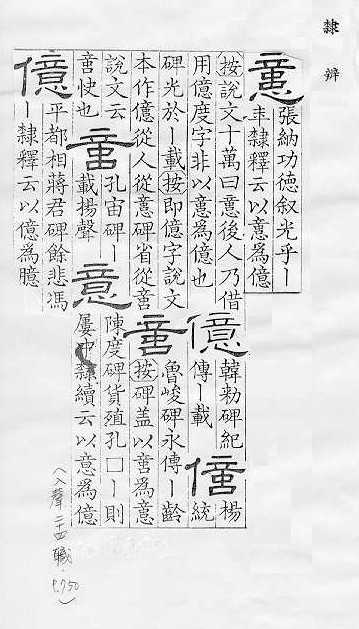 隸辨
意
張納功徳叙光乎丨
隸釋云以意為億
按說文十萬曰意後人乃借
用億度字非以意為億也
億
韓勑碑紀
傳丨載
億
楊
統
碑光於丨載按即億字說文
本作億從人從意碑省從啻
啻
魯峻碑永傳丨齡
按碑盖以啻為意
說文云
啻快也
啻
孔宙碑丨
載揚聲
意
陳度碑貨殖孔囗丨則
屢中隸續云以意為億
億
平都相蔣君碑餘悲馮
丨隸釋云以億為臆
(入聲二十四職．P.750)